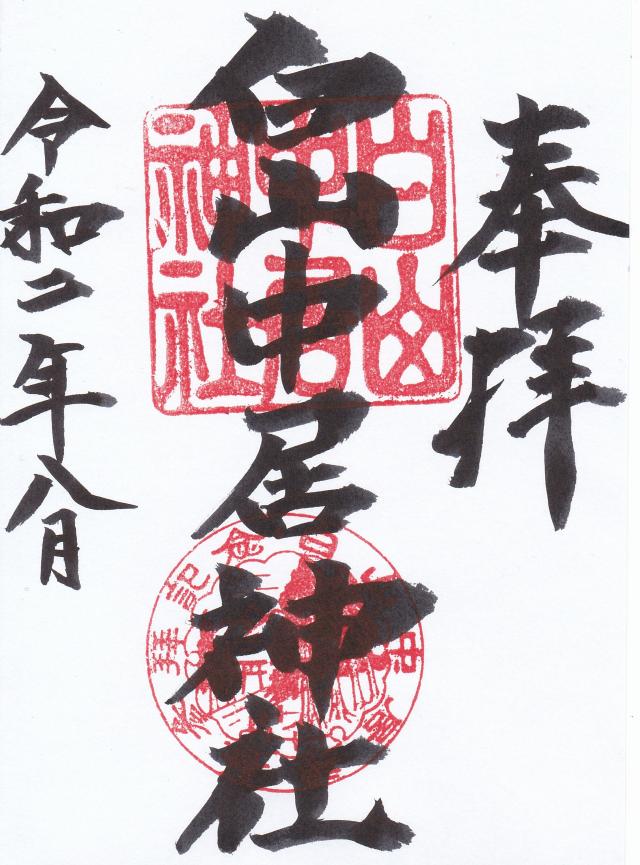 奉拝
白山中居神社
令和二年八月
白山
中居
神社